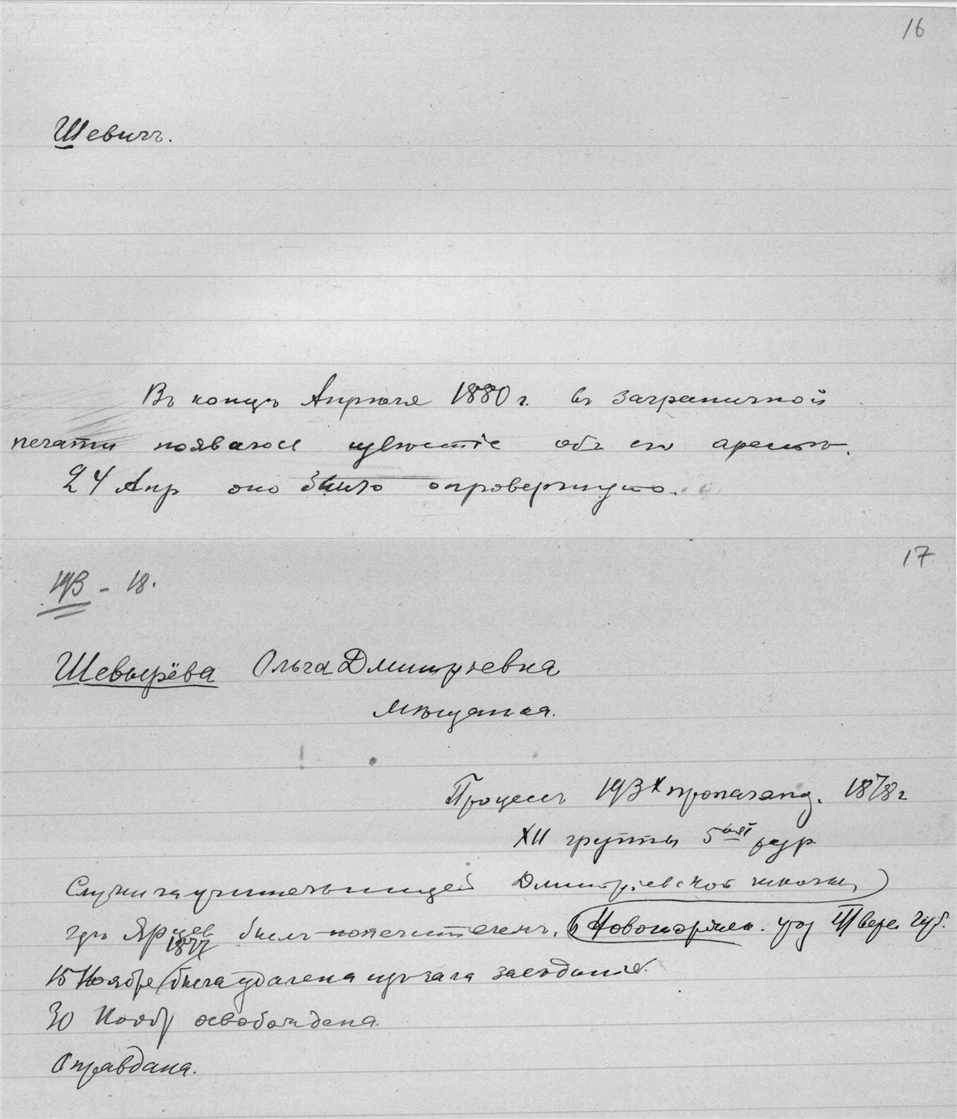 16
Шевичъ.
Въ концѣ Апрѣля 1880 г. въ заграничной
печати появилось извѣстіе объ его арестѣ.
24 Апр оно было опровергнуто.
17
193 - 18.
Шевырёва Ольга Дмитріевна
Мѣщанка.
Процессъ 193х пропаганд. 1878 г
XII группы 5ой
Служила учительницей Дмитріевской школы,
гдѣ Ярцев былъ попечителемъ, в Новоторжск. уѣз Твер. губ.
15 Ноября 1877 была удалена изъ зала засѣданія.
30 Нояб освобождена.
Оправдана.